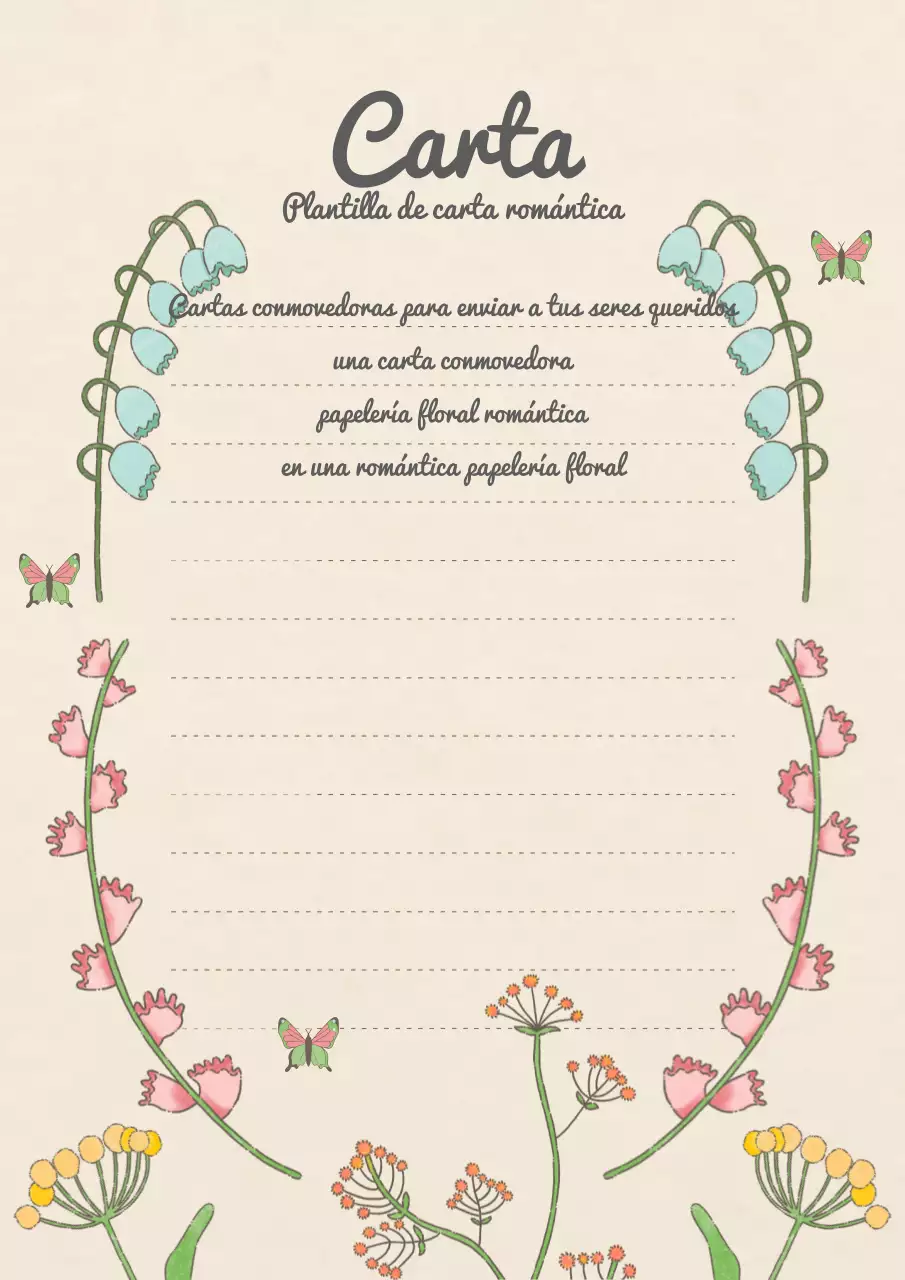 Carta
Plantilla de carta romántica
Cartas conmovedoras para enviar a tus seres queridos
una carta conmovedora
papelería floral romántica
en una romántica papelería floral